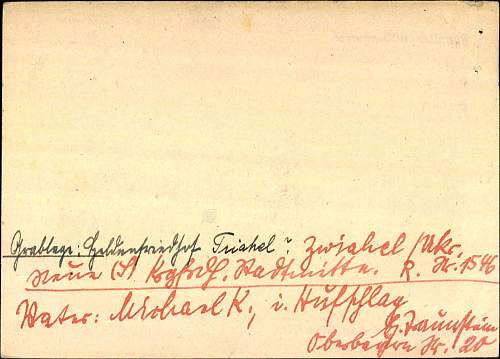 Grablage: Heldenfriedhof Triahel? Zwiahel /Ukr,
neue (S) Kgfrdh. Stadtmitte. R. Nr. 1546
Vater: Michael K., i. Hufschlag
b. Traunstein
Oberbayern Nr. 20